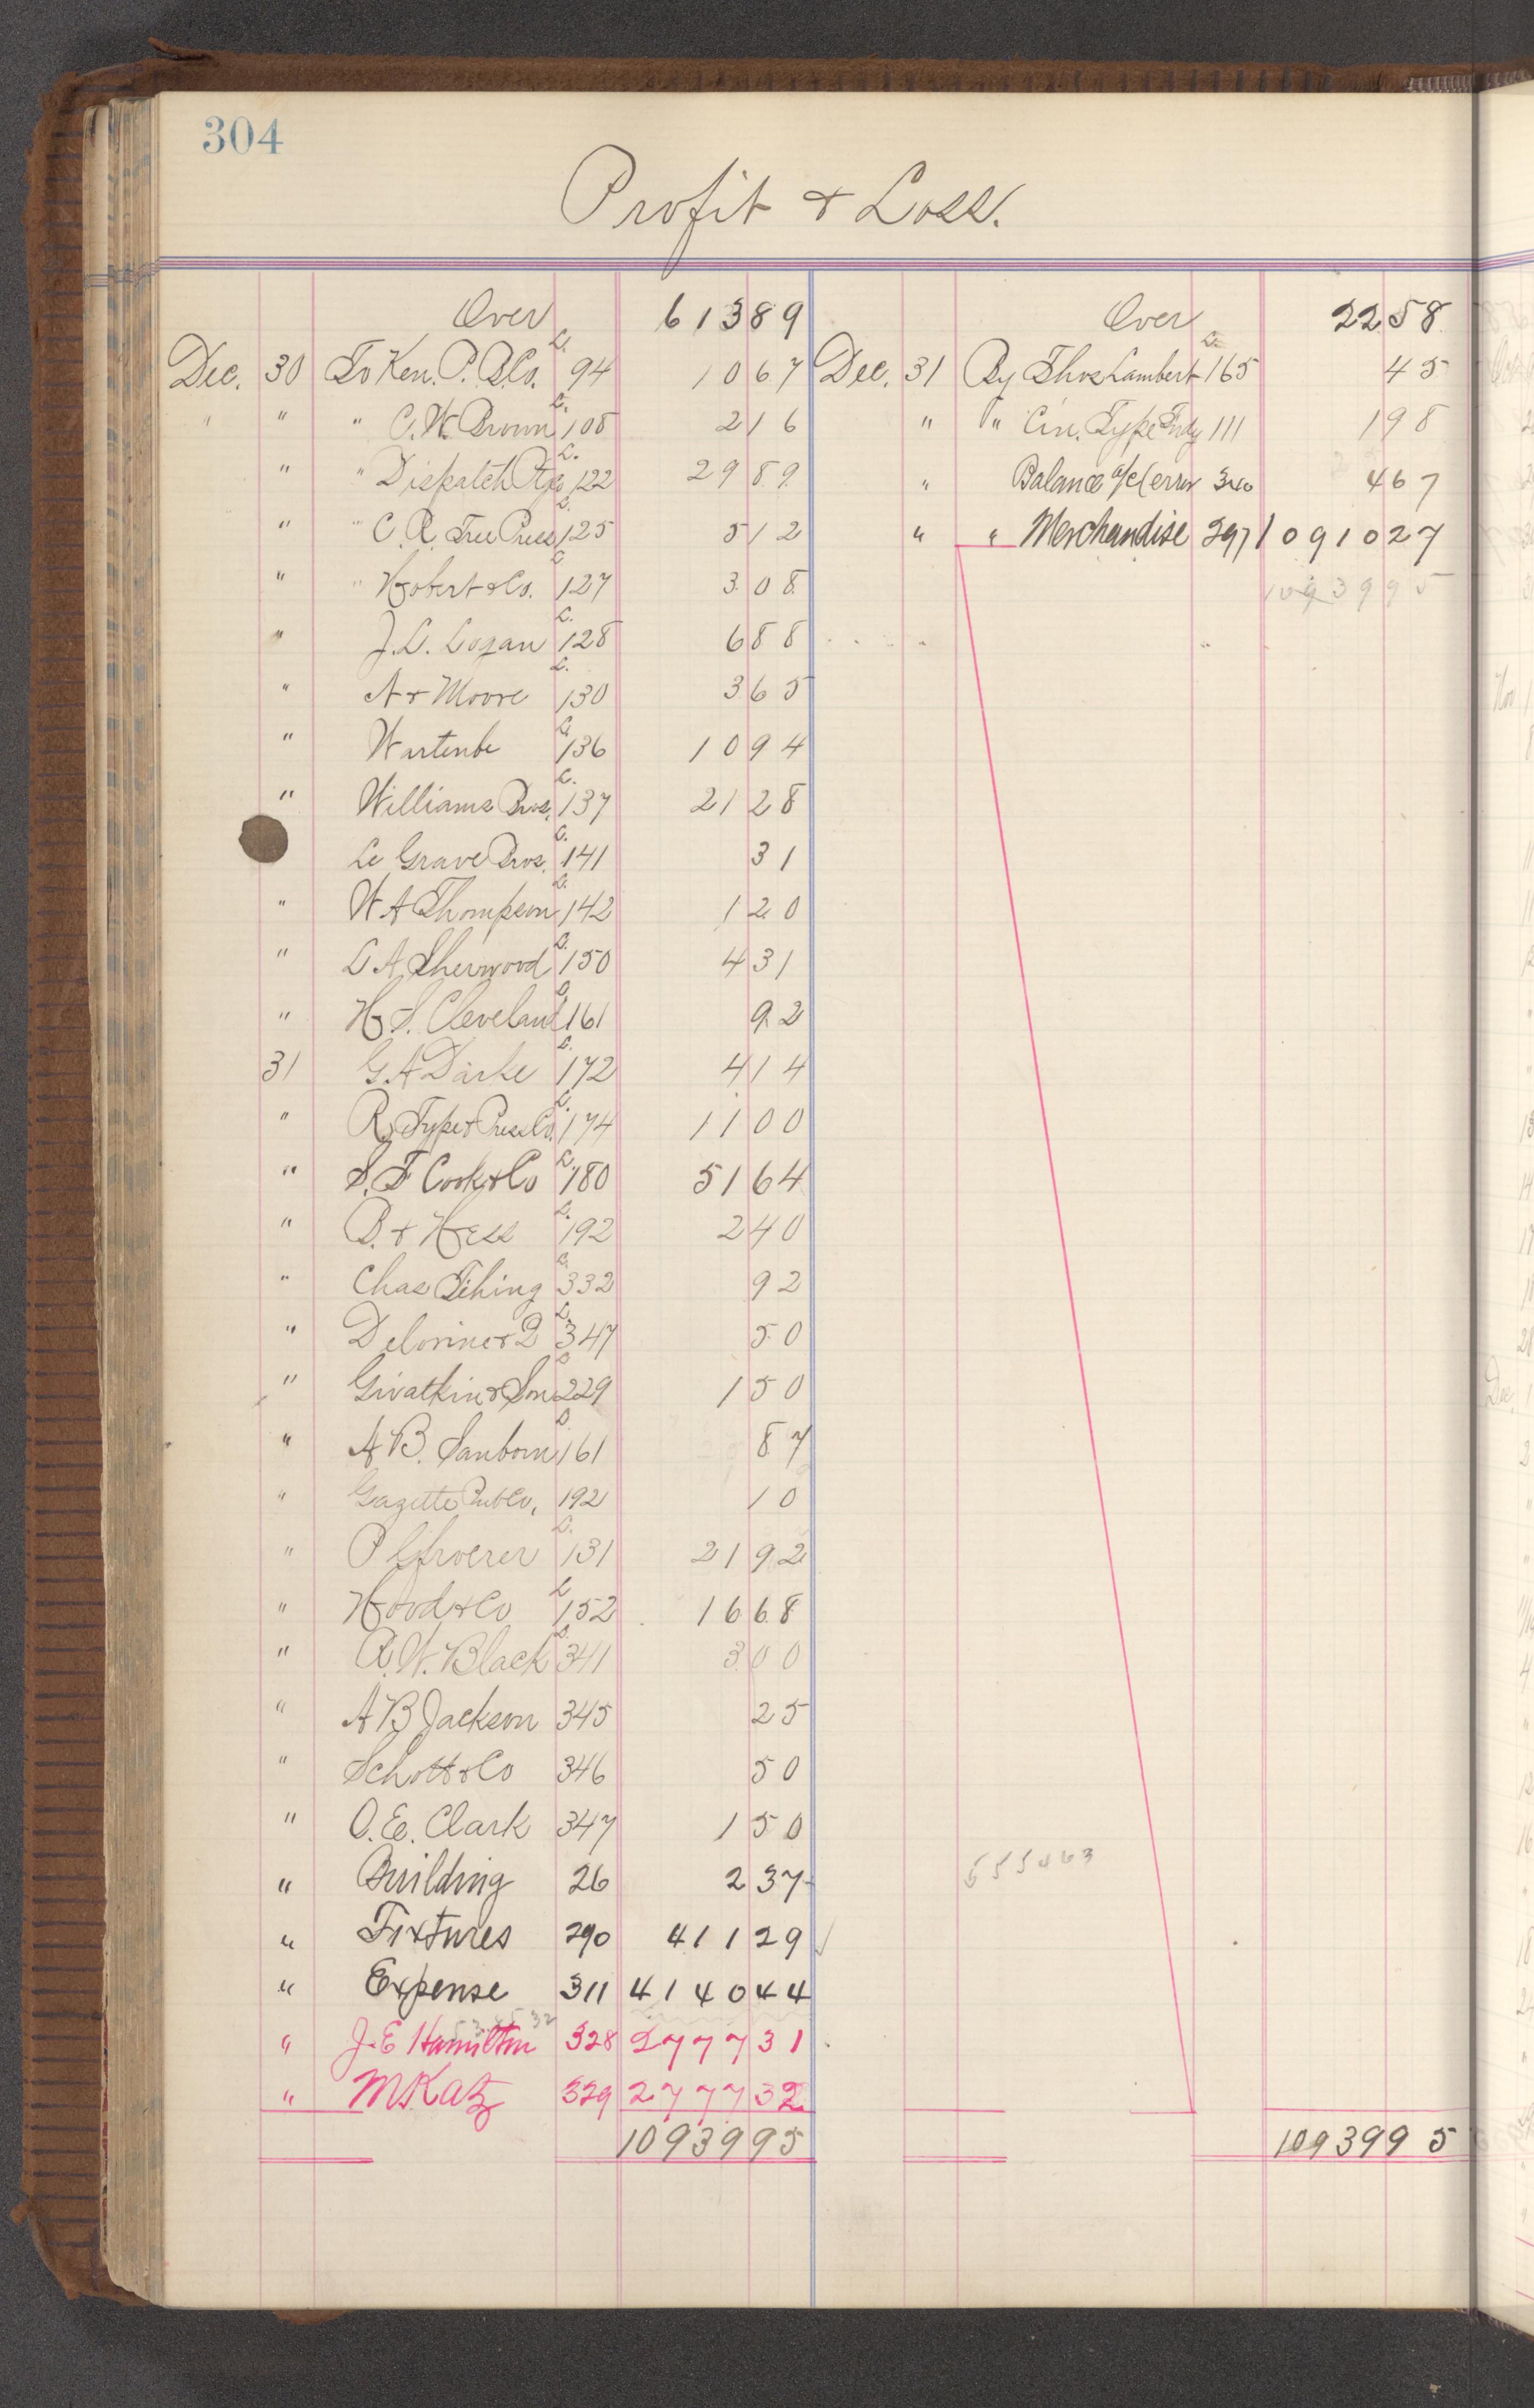 304
Profit & Loss.
Over 613 89
Dec. 30 To Ken. P. B. Co. L. 94 10 67
" " " C. W. Brown L. 108 2 16
" " Dispatch Ptg Co L. 122 29 89
" " C. R. Free Press L. 125 5 12
" " Hobert & Co. L 127 3 08
" J. L. Logan L. 128 6 88
" N & Moore L. 130 3 65
" Wartenbe L. 136 10 94
" Williams Bros. L. 137 21 28
Le Grave Bros. L. 141 31
" W A Thompson L. 142 1 20
" L A Sherwood L. 150 4 31
" H S. Cleveland L. 161 92
31 G. A Darke L. 172 4 14
" R Type & Press Co. L. 174 11 00
" S. F Cook & Co L. 180 51 64
" B. & Hess L. 192 2 40
" Chas L. 332 92
" L. 347 50
" & Son L 229 1 50
" A B. Sanborn L 161 87
" Gazette Pub Co. 192 10
" P L. 131 21 92
" Hood & Co L 152 16 68
" R. W. Black L. 341 3 00
" A B Jackson 345 25
" Schott & Co 346 50
" O. E. Clark 347 1 50
" Building 26 2 37
" Fixtures 290 411 29
" Expense 311 4140 44
" J. E Hamilton 328 2777 31
" M Katz 329 2777 32
10939 95
Over 22 58
Dec. 31 By Thos Lambert L. 165 45
" " Cin. Type Fndy 111 1 98
" Balance a/c (error 340 4 67
" " Merchandise 297 10910 27
10939 95
10939 95